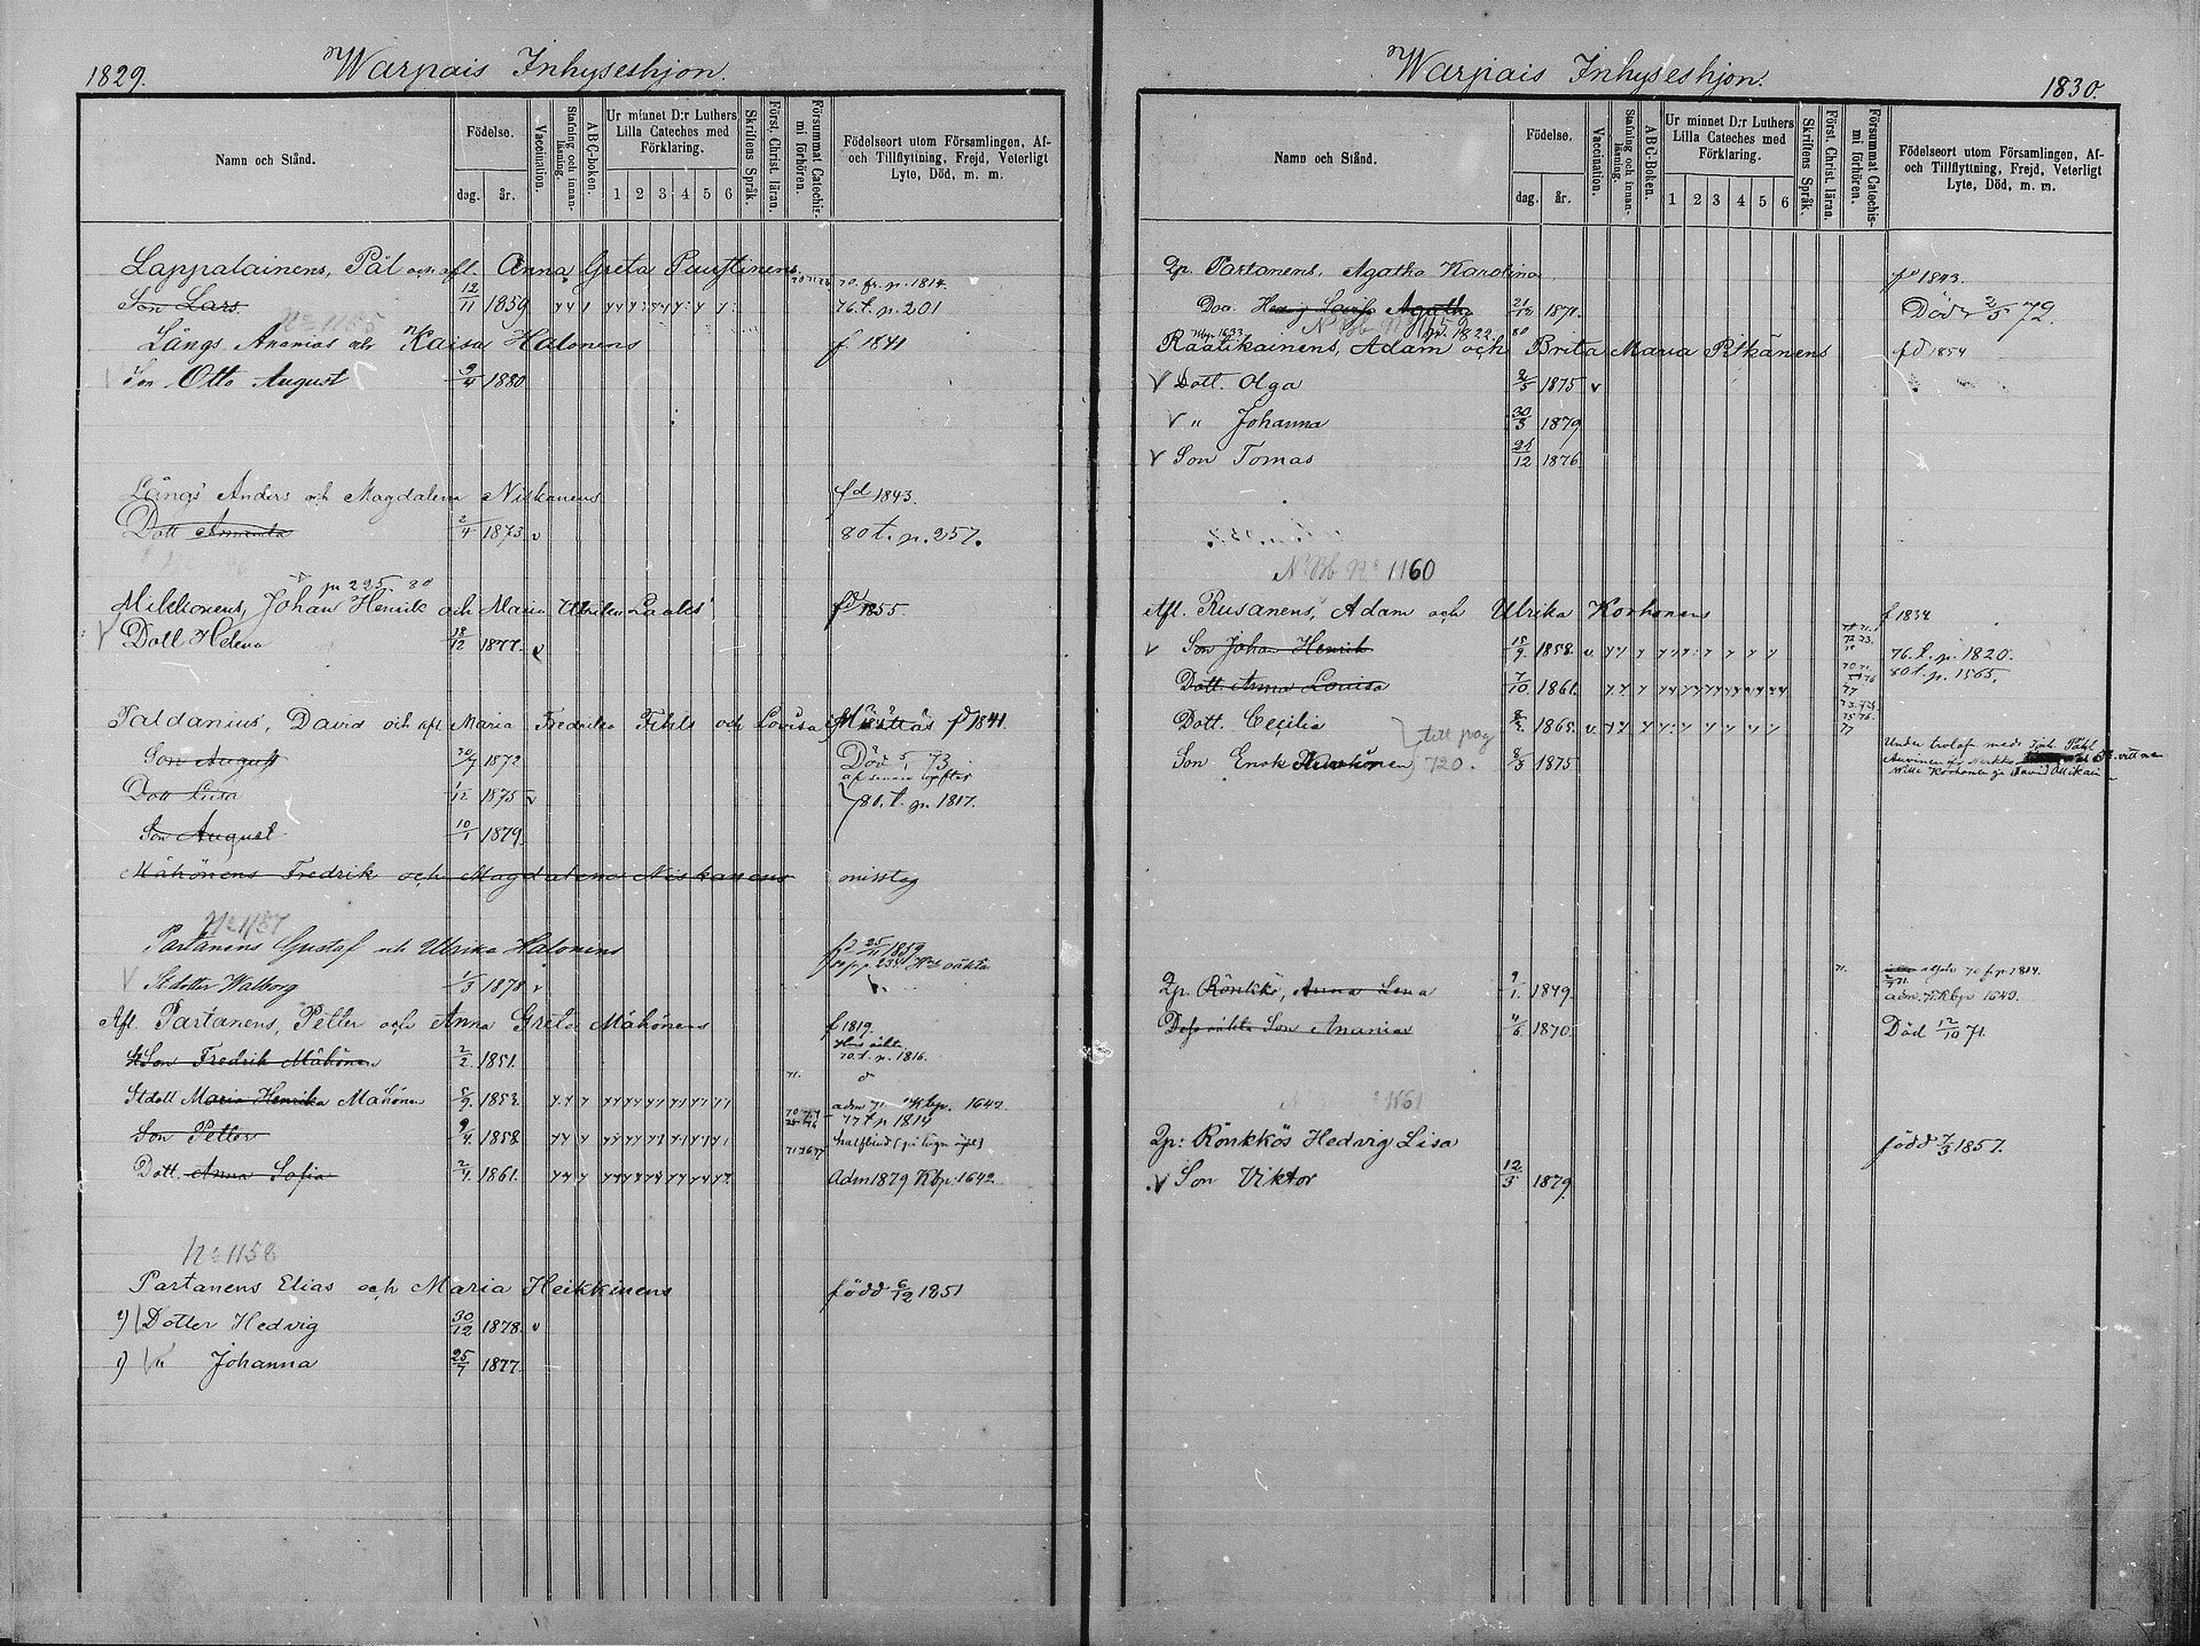 1829.
Warpais Inhyseshjon.
Namn och Stånd.
Födelse.
dag.
år.
Vaccination.
Stafning och innan-läsning.
ABC-boken.
Ur minnet D:r Luthers Lilla Cateches med Förklaring.
1 2 3 4 5 6
Skriftens Språk.
Först. Christ. läran.
Försummat Catechis-mi förhören.
Födelseort utom Församlingen, Af- och Tillflyttning, Frejd, Veterligt Lyte, Död, m. m.
Lappalainens, Pål och afl. Anna Greta Paustinens 70. fr. p. 1814.
Son Lars. 12/11 1859 76. t. p. 201
No 1155
Längs Ananias och Kaisa Halonens f 1841
Son Otto August 9/4 1880
Längs Anders och Magdalena Niskanens fd 1843.
Dott Amanda 2/4 1873 v 80 t. p. 257.
p 225 80
Mikkonens, Johan Henrik och Maria Ulrika Laaks fd 1855
V Dott Helena 18/12 1877. v
Paldanius, David och afl. Maria Fredrika Fihls och Lovisa Määttäs fd 1841.
Son August 30/7 1872 Död 5/1 73
Dott Lisa 1/12 1875 v 80. t. p. 1817.
Son August 10/1 1879
Mähönens Fredrik och Magdalena Niskanens misstag
No 1157
Partanens Gustaf och Ulrika Halonens fd 25/11 1859
V Stdotter Walborg 1/3 1878 v
Afl. Partanens, Petter och Anna Greta Mähönens f 1819.
StSon Fredrik Mähönen 2/2. 1851. 70. t. p. 1816.
71.
Stdott Maria Henrika Mähönen 5/9. 1853. adm 71. Kbp. 1642.
77 t p 1814
Son Petter 9/4. 1858. halfblind (på högra ögat)
Dott. Anna Sofia 2/4. 1861. Adm 1879 Kbp: 1642.
No 1158
Partanens Elias och Maria Heikkinens född 6/12 1851
2) Dotter Hedvig 30/12 1878. v
1) " Johanna 25/7 1877.
Warpais Inhyseshjon.
1830.
Namn och Stånd.
Födelse.
dag.
år.
Vaccination.
Stafning och innan-läsning.
ABC-Boken.
Ur minnet D:r Luthers Lilla Cateches med Förklaring.
1 2 3 4 5 6
Skriftens Språk.
Först. Christ. läran.
Försummat Catechis-mi förhören.
Födelseort utom Församlingen, Af- och Tillflyttning, Frejd, Veterligt Lyte, Död, m. m.
Qp. Partanens, Agatha Karolina fd 1843.
Död 2/5 72.
Kbp. 1633 p. 1822. 80
Raatikainens, Adam och Brita Maria Pitkänens fd 1854
V Dott. Olga 2/5 1875 v
V " Johanna 30/3 1879
V Son Tomas 21/12 1876
No 1160
Afl. Rusanens, Adam och Ulrika Korhonens f 1834
V Son Johan Henrik 15/9. 1858. v. 76. t. p. 1820.
Dott. Anna Lovisa 7/10. 1861. 80 t. p. 1565.
Dott. Cecilia 8/2. 1865. v.
till pag 720.
Son Enok 8/3 1875
71.
Qp. Rönkkö, Anna Lena 9/1. 1849. 70 f. p. 1814.
adm. 71. Kbp 1640.
Dess oäkta Son Ananias 4/6 1870. Död 12/10 71.
1161
Qp: Rönkkös Hedvig Lisa född 7/3 1857.
V Son Viktor 12/5 1879